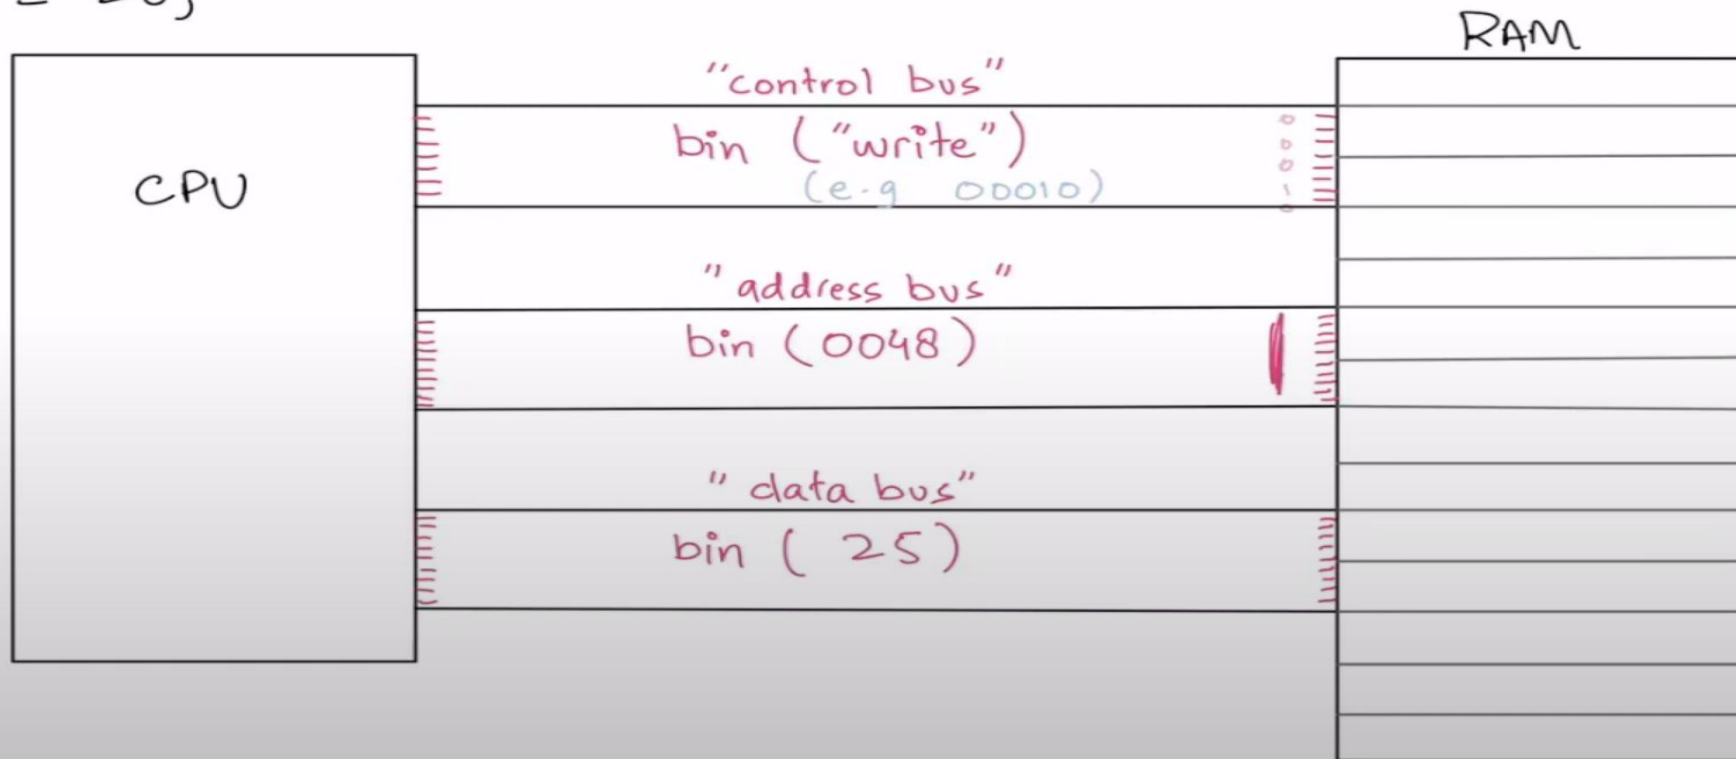 RAM
"control bus"
CPU
bin ("write")
(e.g 00010)
0
0
0
1
0
"address bus"
bin (0048)
"data bus"
bin ( 25)